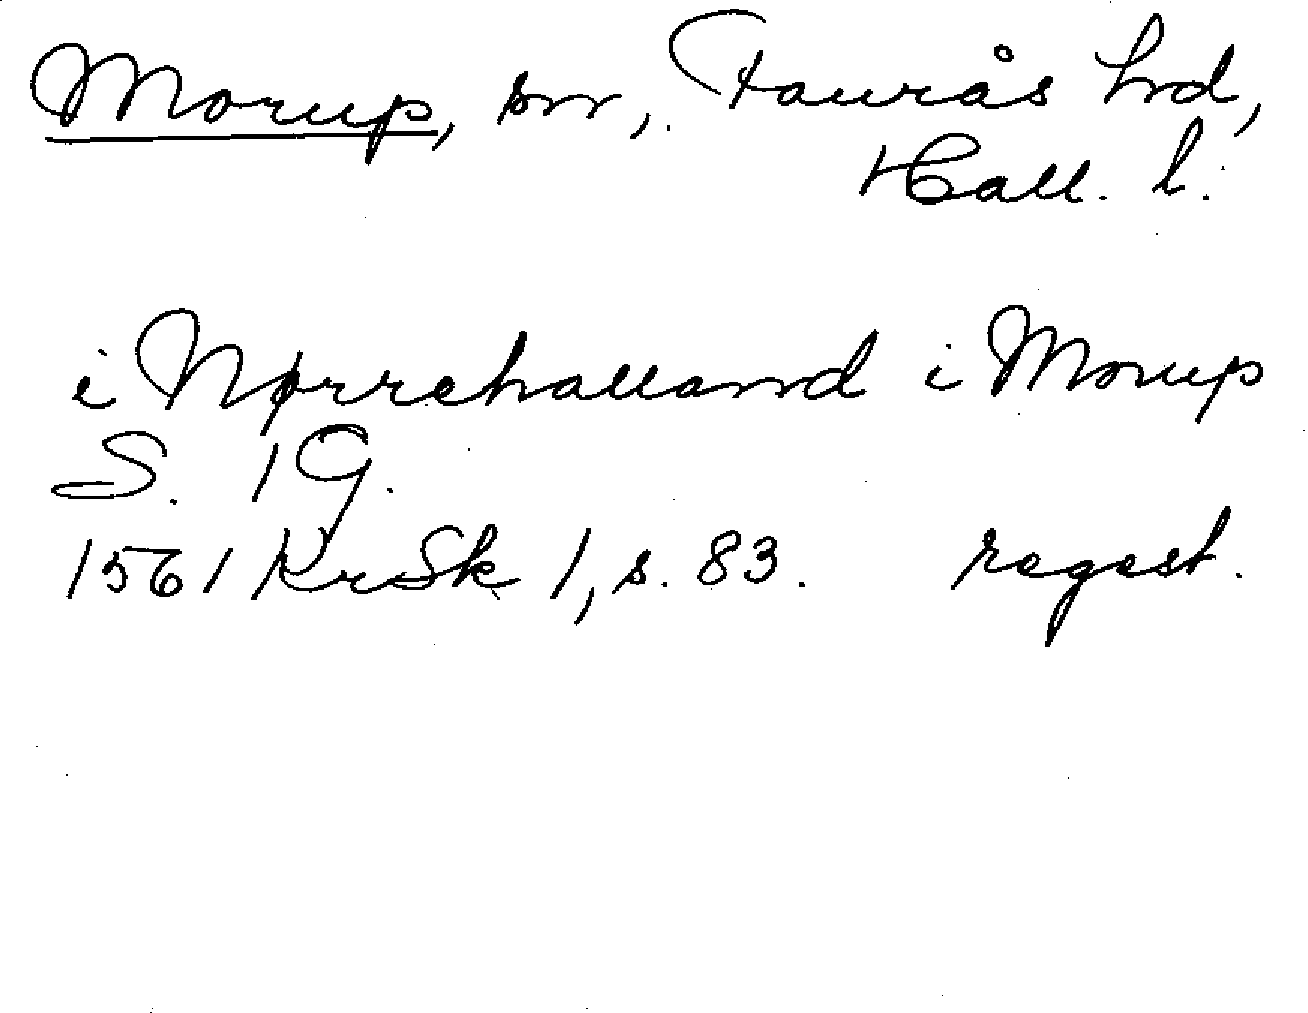 Morup, sn, Faurås hd,
Hall. l.
i Nørrehalland i Morup
S. 19.
1561 KrSk 1, s. 83. regest.